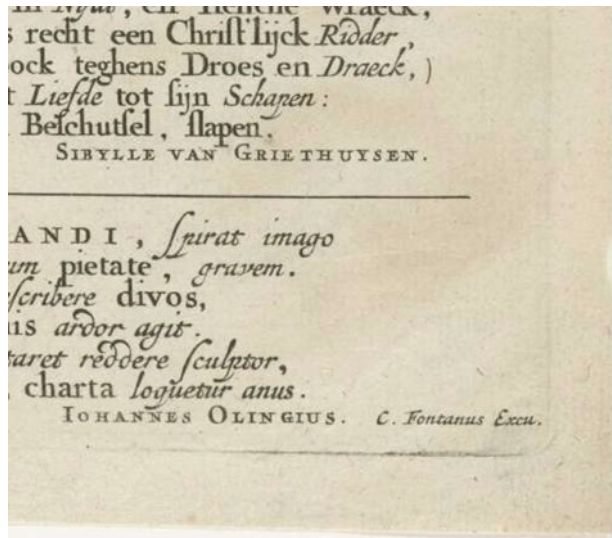 in Nydt, en Helsche Wraeck,
s recht een Chriſt'lijck Ridder,
ock teghens Droes en Draeck,)
t Liefde tot ſijn Schapen:
Beſchutſel, ſlapen.
SIBYLLE VAN GRIETHUYSEN.
ANDI, ſpirat imago
um pietate, gravem.
ſcribere divos,
is ardor agit.
taret reddere ſculptor,
charta loquetur anus.
IOHANNES OLINGIUS. C. Fontanus Excu.